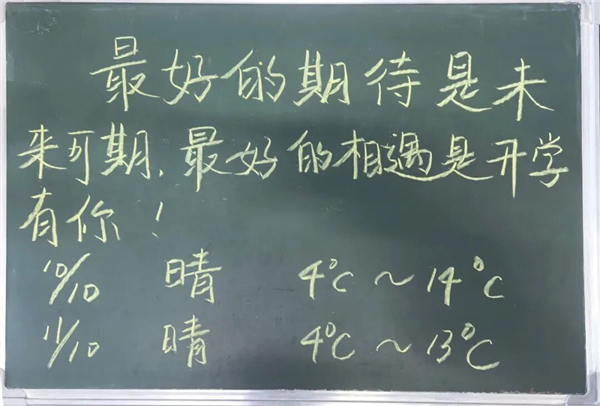 最好的期待是未
来可期,最好的相遇是开学
有你!
10/10 晴 4°C~14°C
11/10 晴 4°C~13°C